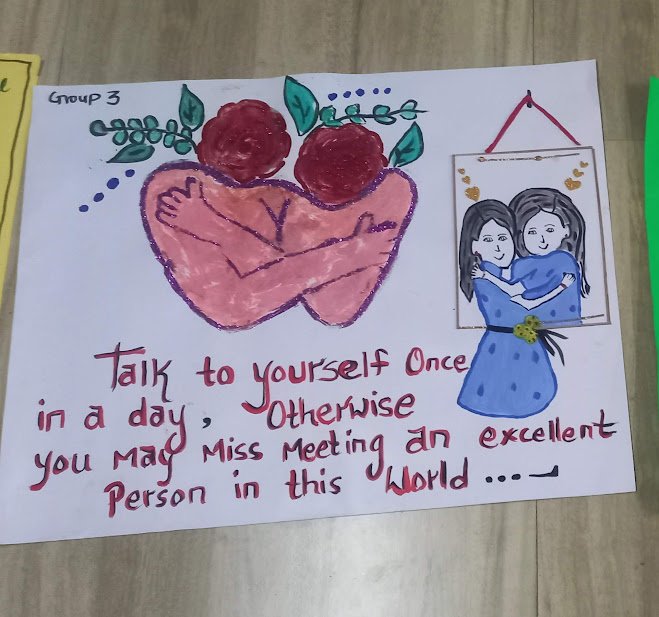 Group 3
Talk to yourself Once
in a day, Otherwise
you May Miss Meeting an excellent
Person in this World ....